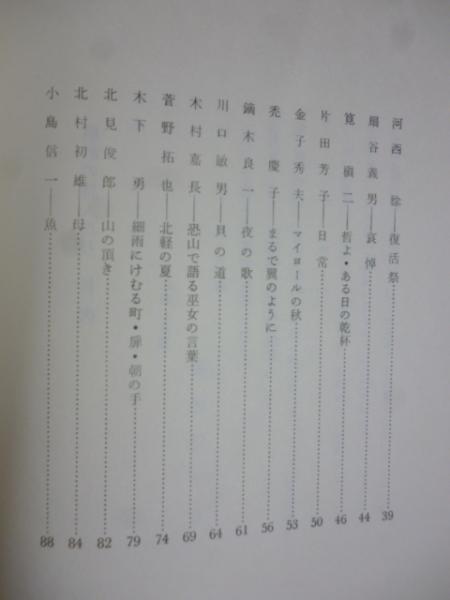 河西　　　——復活祭………39
扇谷義男——哀悼………44
筧　槇二——哲よ・ある日の乾杯………46
片田芳子——日常………50
金子秀夫——マイヨールの秋………53
禿　慶子——まるで翼のように………56
鏑木良一——夜の歌………61
川口敏男——貝の道………64
木村嘉長——恐山で語る巫女の言葉………69
菅野拓也——北軽の夏………74
木下　勇——細雨にけむる町・扉・朝の手………79
北見俊郎——山の頂き………82
北村初雄——母………84
小島信一——魚………88